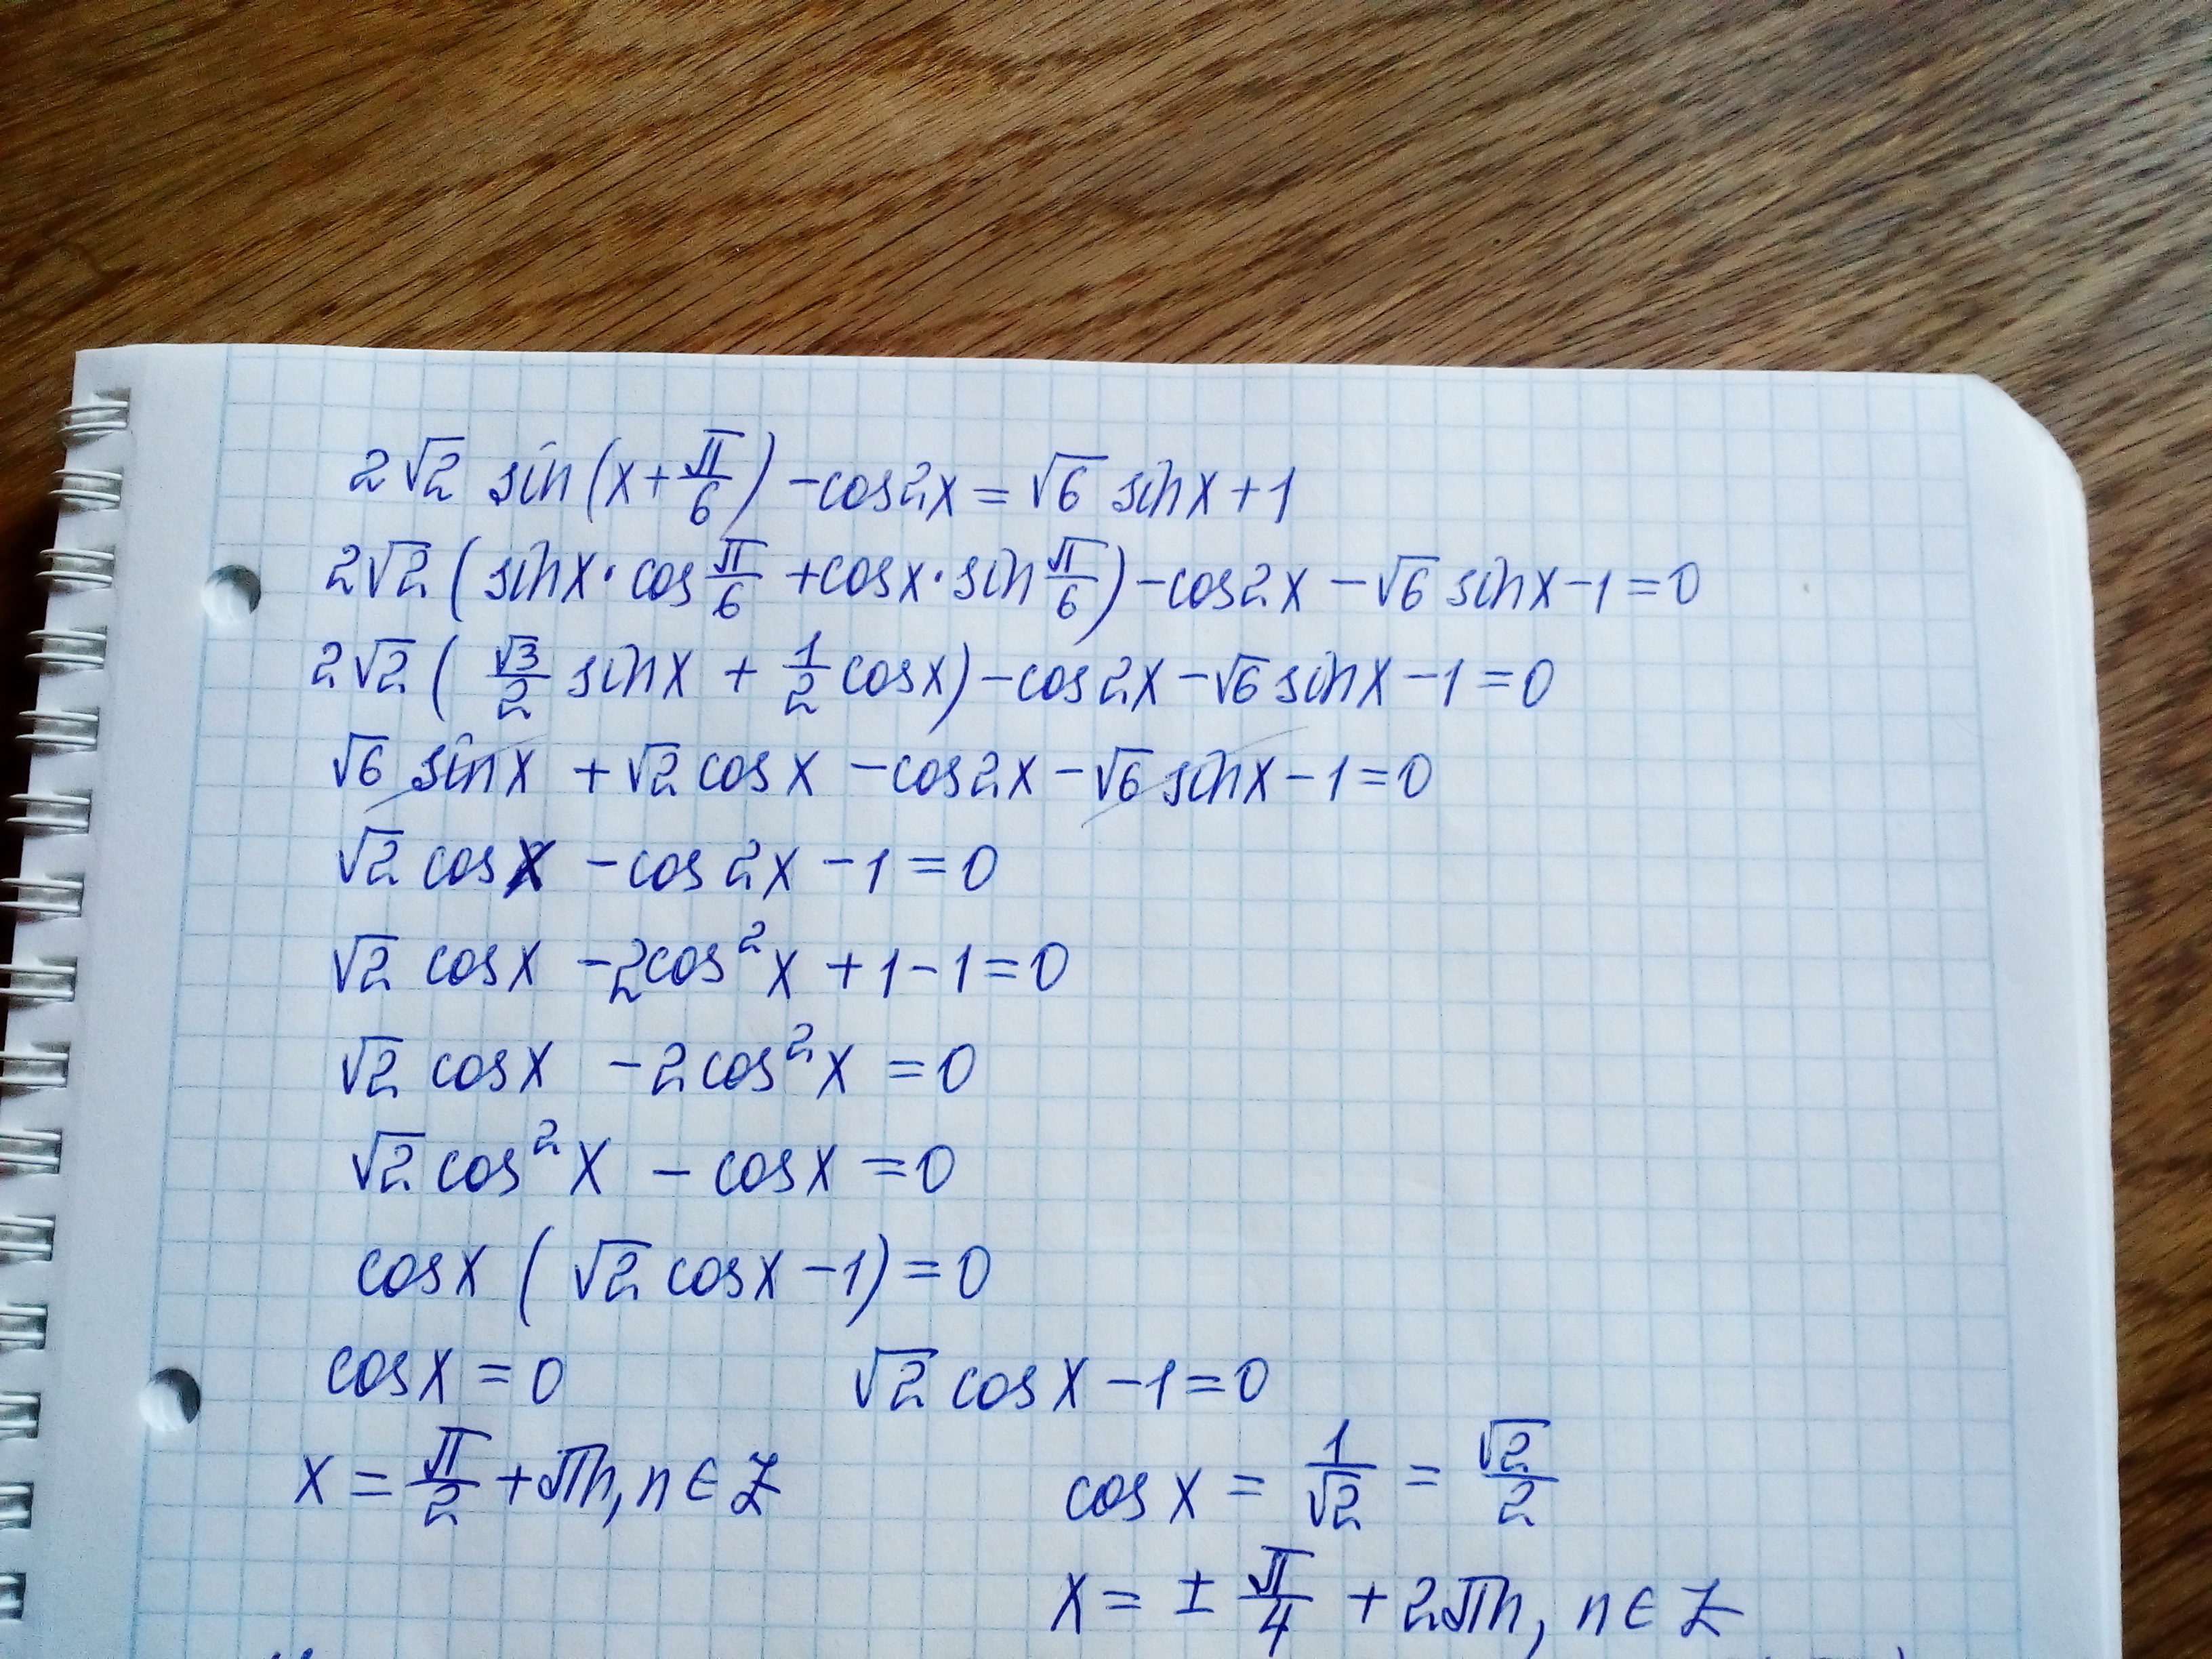 2√2 sin(x + π/6) - cos2x = √6 sinx + 1
2√2 (sinx · cos π/6 + cosx · sin π/6) - cos2x - √6 sinx - 1 = 0
2√2 (√3/2 sinx + 1/2 cosx) - cos2x - √6 sinx - 1 = 0
√6 sinx + √2 cosx - cos2x - √6 sinx - 1 = 0
√2 cosx - cos2x - 1 = 0
√2 cosx - 2cos²x + 1 - 1 = 0
√2 cosx - 2cos²x = 0
√2 cos²x - cosx = 0
cosx (√2 cosx - 1) = 0
cosx = 0 √2 cosx - 1 = 0
x = π/2 + πn, n ∈ Z cosx = 1/√2 = √2/2
x = ± π/4 + 2πn, n ∈ Z